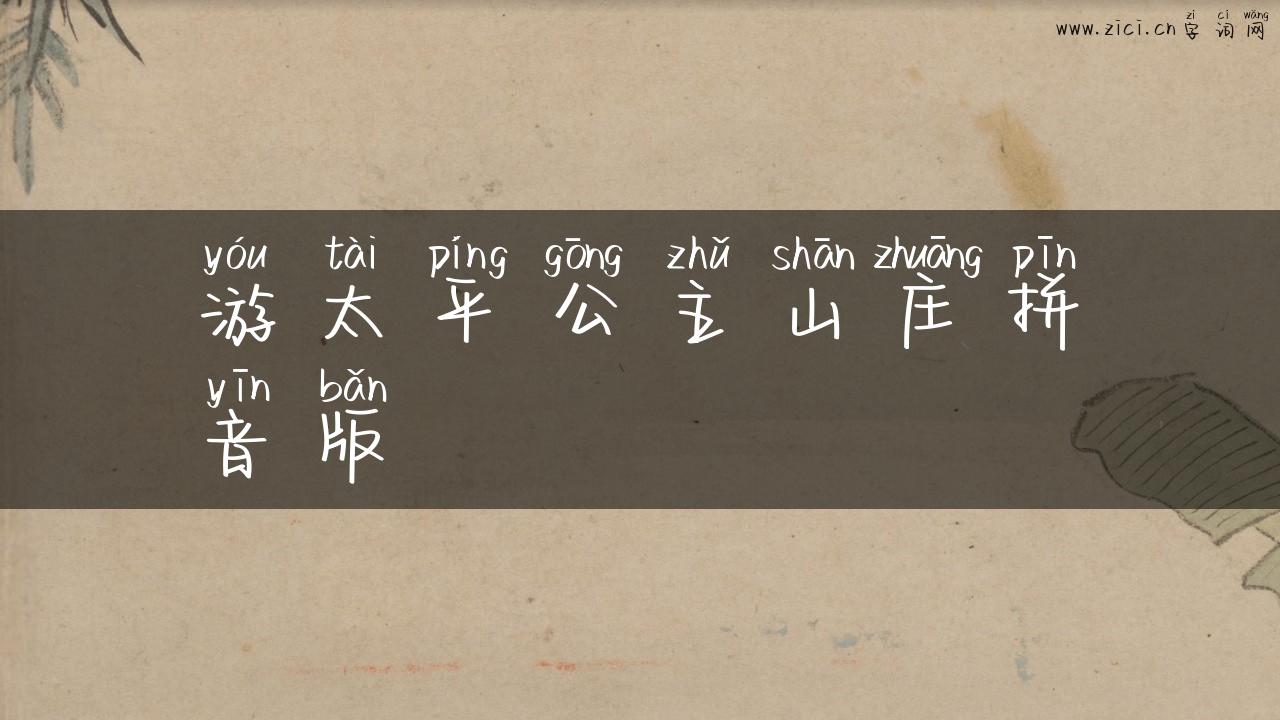 zì cí wǎng
www.zici.cn 字词网
yóu tài píng gōng zhǔ shān zhuāng pīn
游太平公主山庄拼
yīn bǎn
音版